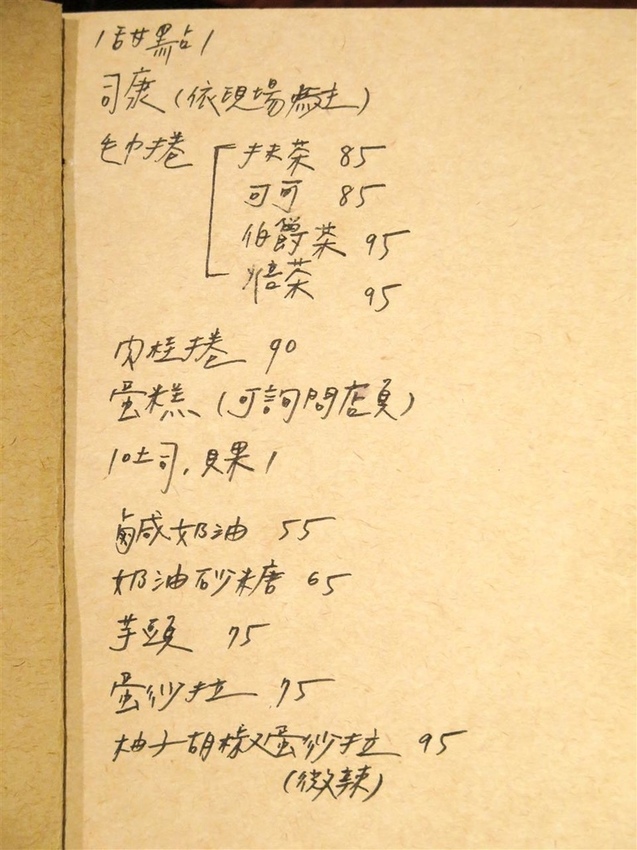 /甜點/
司康(依現場為主)
毛巾捲 抹茶 85
可可 85
伯爵茶 95
焙茶 95
肉桂捲 90
蛋糕(可詢問店員)
/吐司,貝果/
鹹奶油 55
奶油砂糖 65
芋頭 75
蛋沙拉 75
柚子胡椒蛋沙拉 95
(微辣)